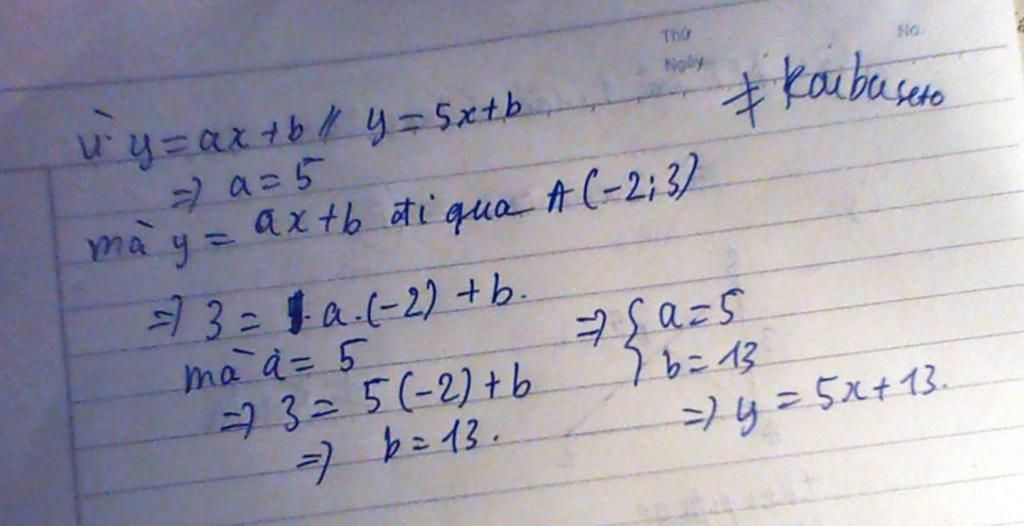 Thứ
No.
Ngày
≠ Kaibaseto
Vì y = ax + b // y = 5x + b
=> a = 5
mà y = ax + b đi qua A (-2; 3)
=> 3 = a.(-2) + b.
mà a = 5
=> 3 = 5(-2) + b
=> b = 13.
=> { a = 5
b = 13
=> y = 5x + 13.